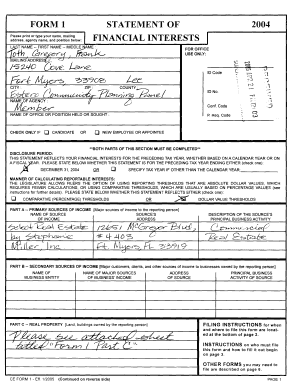 FORM 1 STATEMENT OF 2004
FINANCIAL INTERESTS
Please print or type your name, mailing address, agency name, and position below:
FOR OFFICE USE ONLY:
LAST NAME - FIRST NAME - MIDDLE NAME
Toth Gregory, Frank
MAILING ADDRESS
15240 Cove Lane
Fort Myers 33908 Lee
CITY ZIP COUNTY
Estero Community Planning Panel
NAME OF AGENCY
Member
NAME OF OFFICE OR POSITION HELD OR SOUGHT
ID Code
ID No.
Conf. Code
P. Req. Code
CHECK ONLY IF CANDIDATE OR NEW EMPLOYEE OR APPOINTEE
**BOTH PARTS OF THIS SECTION MUST BE COMPLETED**
DISCLOSURE PERIOD:
THIS STATEMENT REFLECTS YOUR FINANCIAL INTERESTS FOR THE PRECEDING TAX YEAR, WHETHER BASED ON A CALENDAR YEAR OR ON
A FISCAL YEAR. PLEASE STATE BELOW WHETHER THIS STATEMENT IS FOR THE PRECEDING TAX YEAR ENDING EITHER (check one):
DECEMBER 31, 2004 OR SPECIFY TAX YEAR IF OTHER THAN THE CALENDAR YEAR:
MANNER OF CALCULATING REPORTABLE INTERESTS:
THE LEGISLATURE ALLOWS FILERS THE OPTION OF USING REPORTING THRESHOLDS THAT ARE ABSOLUTE DOLLAR VALUES, WHICH
REQUIRES FEWER CALCULATIONS, OR USING COMPARATIVE THRESHOLDS, WHICH ARE USUALLY BASED ON PERCENTAGE VALUES (see
instructions for further details). PLEASE STATE BELOW WHETHER THIS STATEMENT REFLECTS EITHER (check one):
COMPARATIVE (PERCENTAGE) THRESHOLDS OR DOLLAR VALUE THRESHOLDS
PART A - PRIMARY SOURCES OF INCOME [Major sources of income to the reporting person]
NAME OF SOURCE OF INCOME SOURCE'S ADDRESS DESCRIPTION OF THE SOURCE'S PRINCIPAL BUSINESS ACTIVITY
Select Real Estate 12651 McGregor Blvd, Commercial
by Stephanie #4-403 Real Estate
Miller, Inc Ft. Myers, Fl 33919
PART B - SECONDARY SOURCES OF INCOME [Major customers, clients, and other sources of income to businesses owned by the reporting person]
NAME OF BUSINESS ENTITY NAME OF MAJOR SOURCES OF BUSINESS' INCOME ADDRESS OF SOURCE PRINCIPAL BUSINESS ACTIVITY OF SOURCE
PART C - REAL PROPERTY [Land, buildings owned by the reporting person]
Please see attached sheet
titled "Form 1 Part C"
FILING INSTRUCTIONS for when and where to file this form are located at the bottom of page 2.
INSTRUCTIONS on who must file this form and how to fill it out begin on page 3.
OTHER FORMS you may need to file are described on page 6.
CE FORM 1 - Eff. 1/2005 (Continued on reverse side) PAGE 1